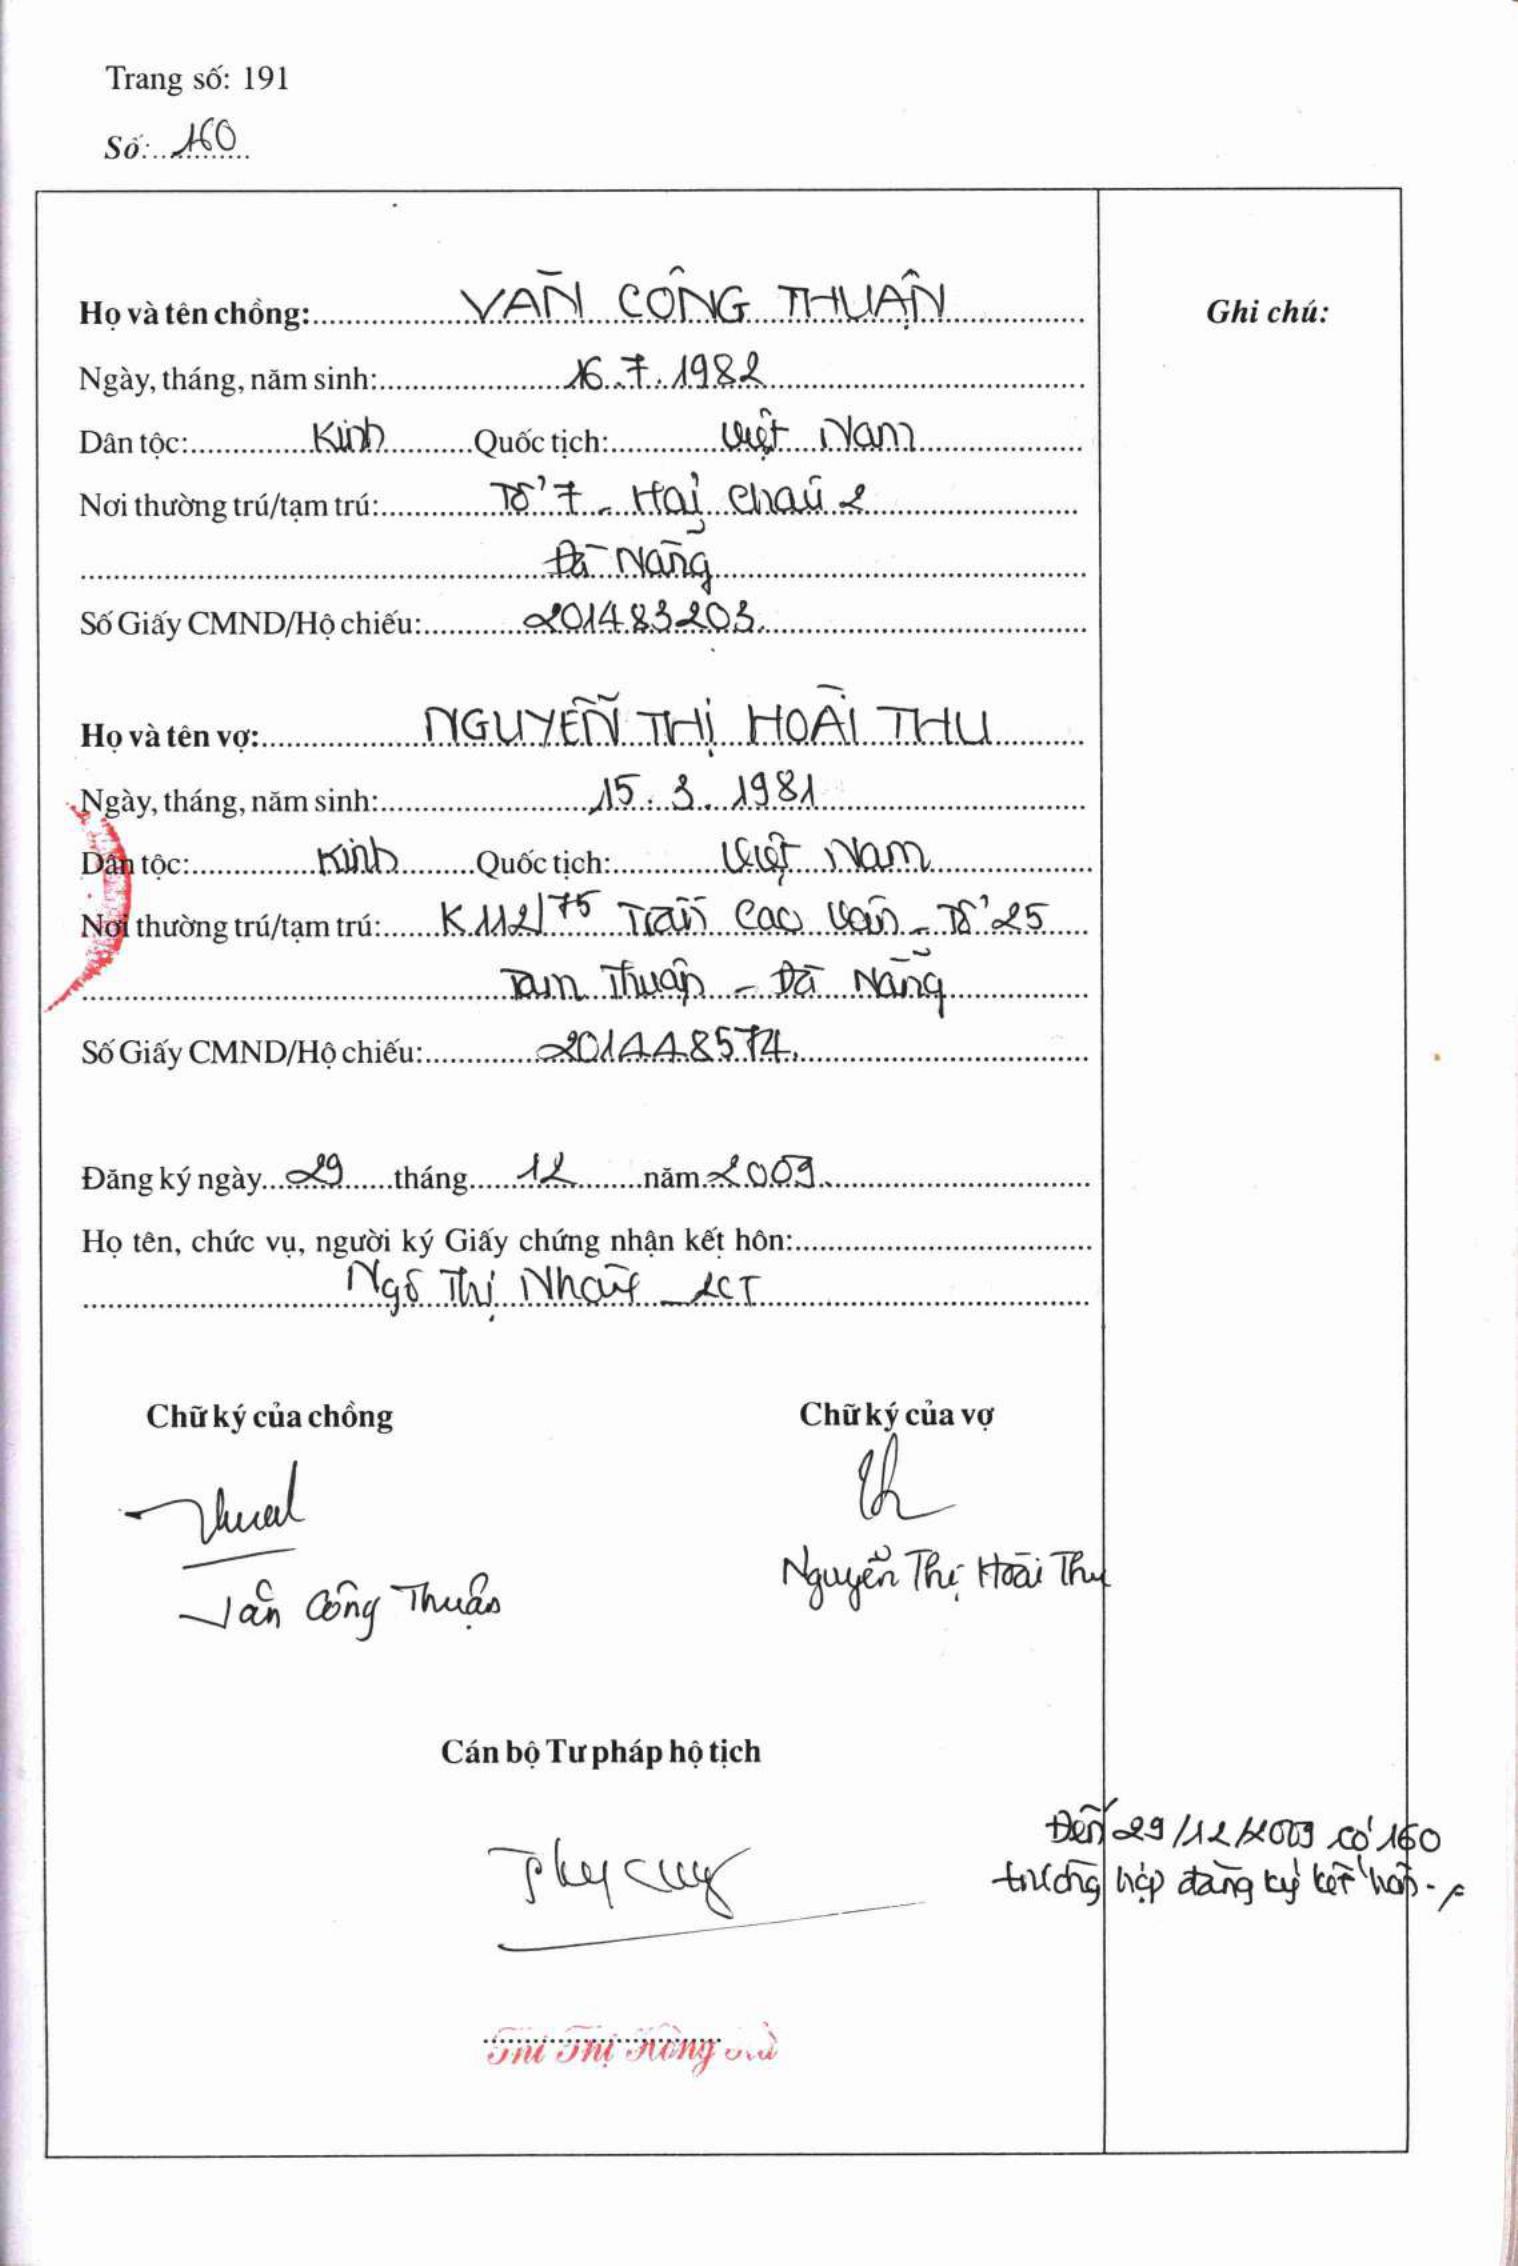 Trang số: 191
Số: 160
Họ và tên chồng: VĂN CÔNG THUẬN
Ghi chú:
Ngày, tháng, năm sinh: 16.7.1982
Dân tộc: Kinh Quốc tịch: Việt Nam
Nơi thường trú/tạm trú: Tổ 7 - Hải Châu 2
Đà Nẵng
Số Giấy CMND/Hộ chiếu: 201483203.
Họ và tên vợ: NGUYỄN THỊ HOÀI THU
Ngày, tháng, năm sinh: 15.3.1981
Dân tộc: Kinh Quốc tịch: Việt Nam
Nơi thường trú/tạm trú: K112/75 Trần Cao Vân - Tổ 25
Tam Thuận - Đà Nẵng
Số Giấy CMND/Hộ chiếu: 201448574.
Đăng ký ngày 29 tháng 12 năm 2009.
Họ tên, chức vụ, người ký Giấy chứng nhận kết hôn:
Ngô Thị - CT
Chữ ký của chồng
Chữ ký của vợ
Văn Công Thuận
Nguyễn Thị Hoài Thu
Cán bộ Tư pháp hộ tịch
Đến 29/12/2009 có 160
trường hợp đăng ký kết hôn.
Thị Hồng